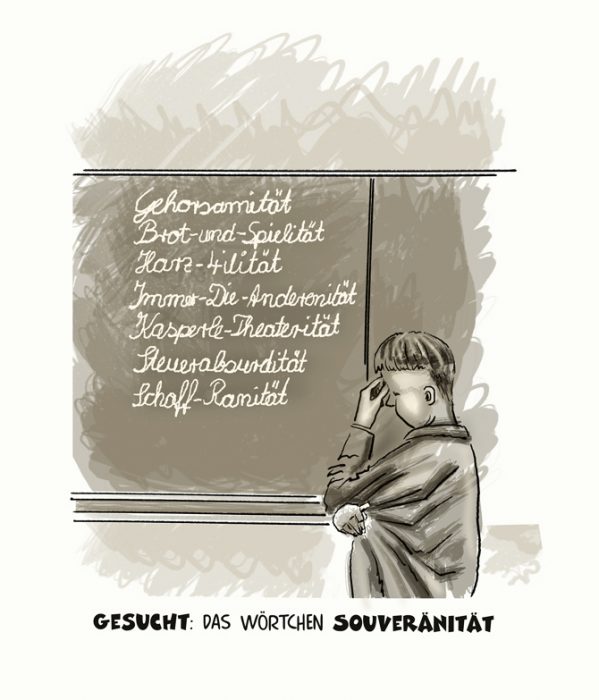 Gehorsamität
Brot-und-Spielität
Harz-4ilität
Immer-Die-Anderenität
Kasperle-Theaterität
Steuerabsurdität
Schaff-Ranität
GESUCHT: DAS WÖRTCHEN SOUVERÄNITÄT